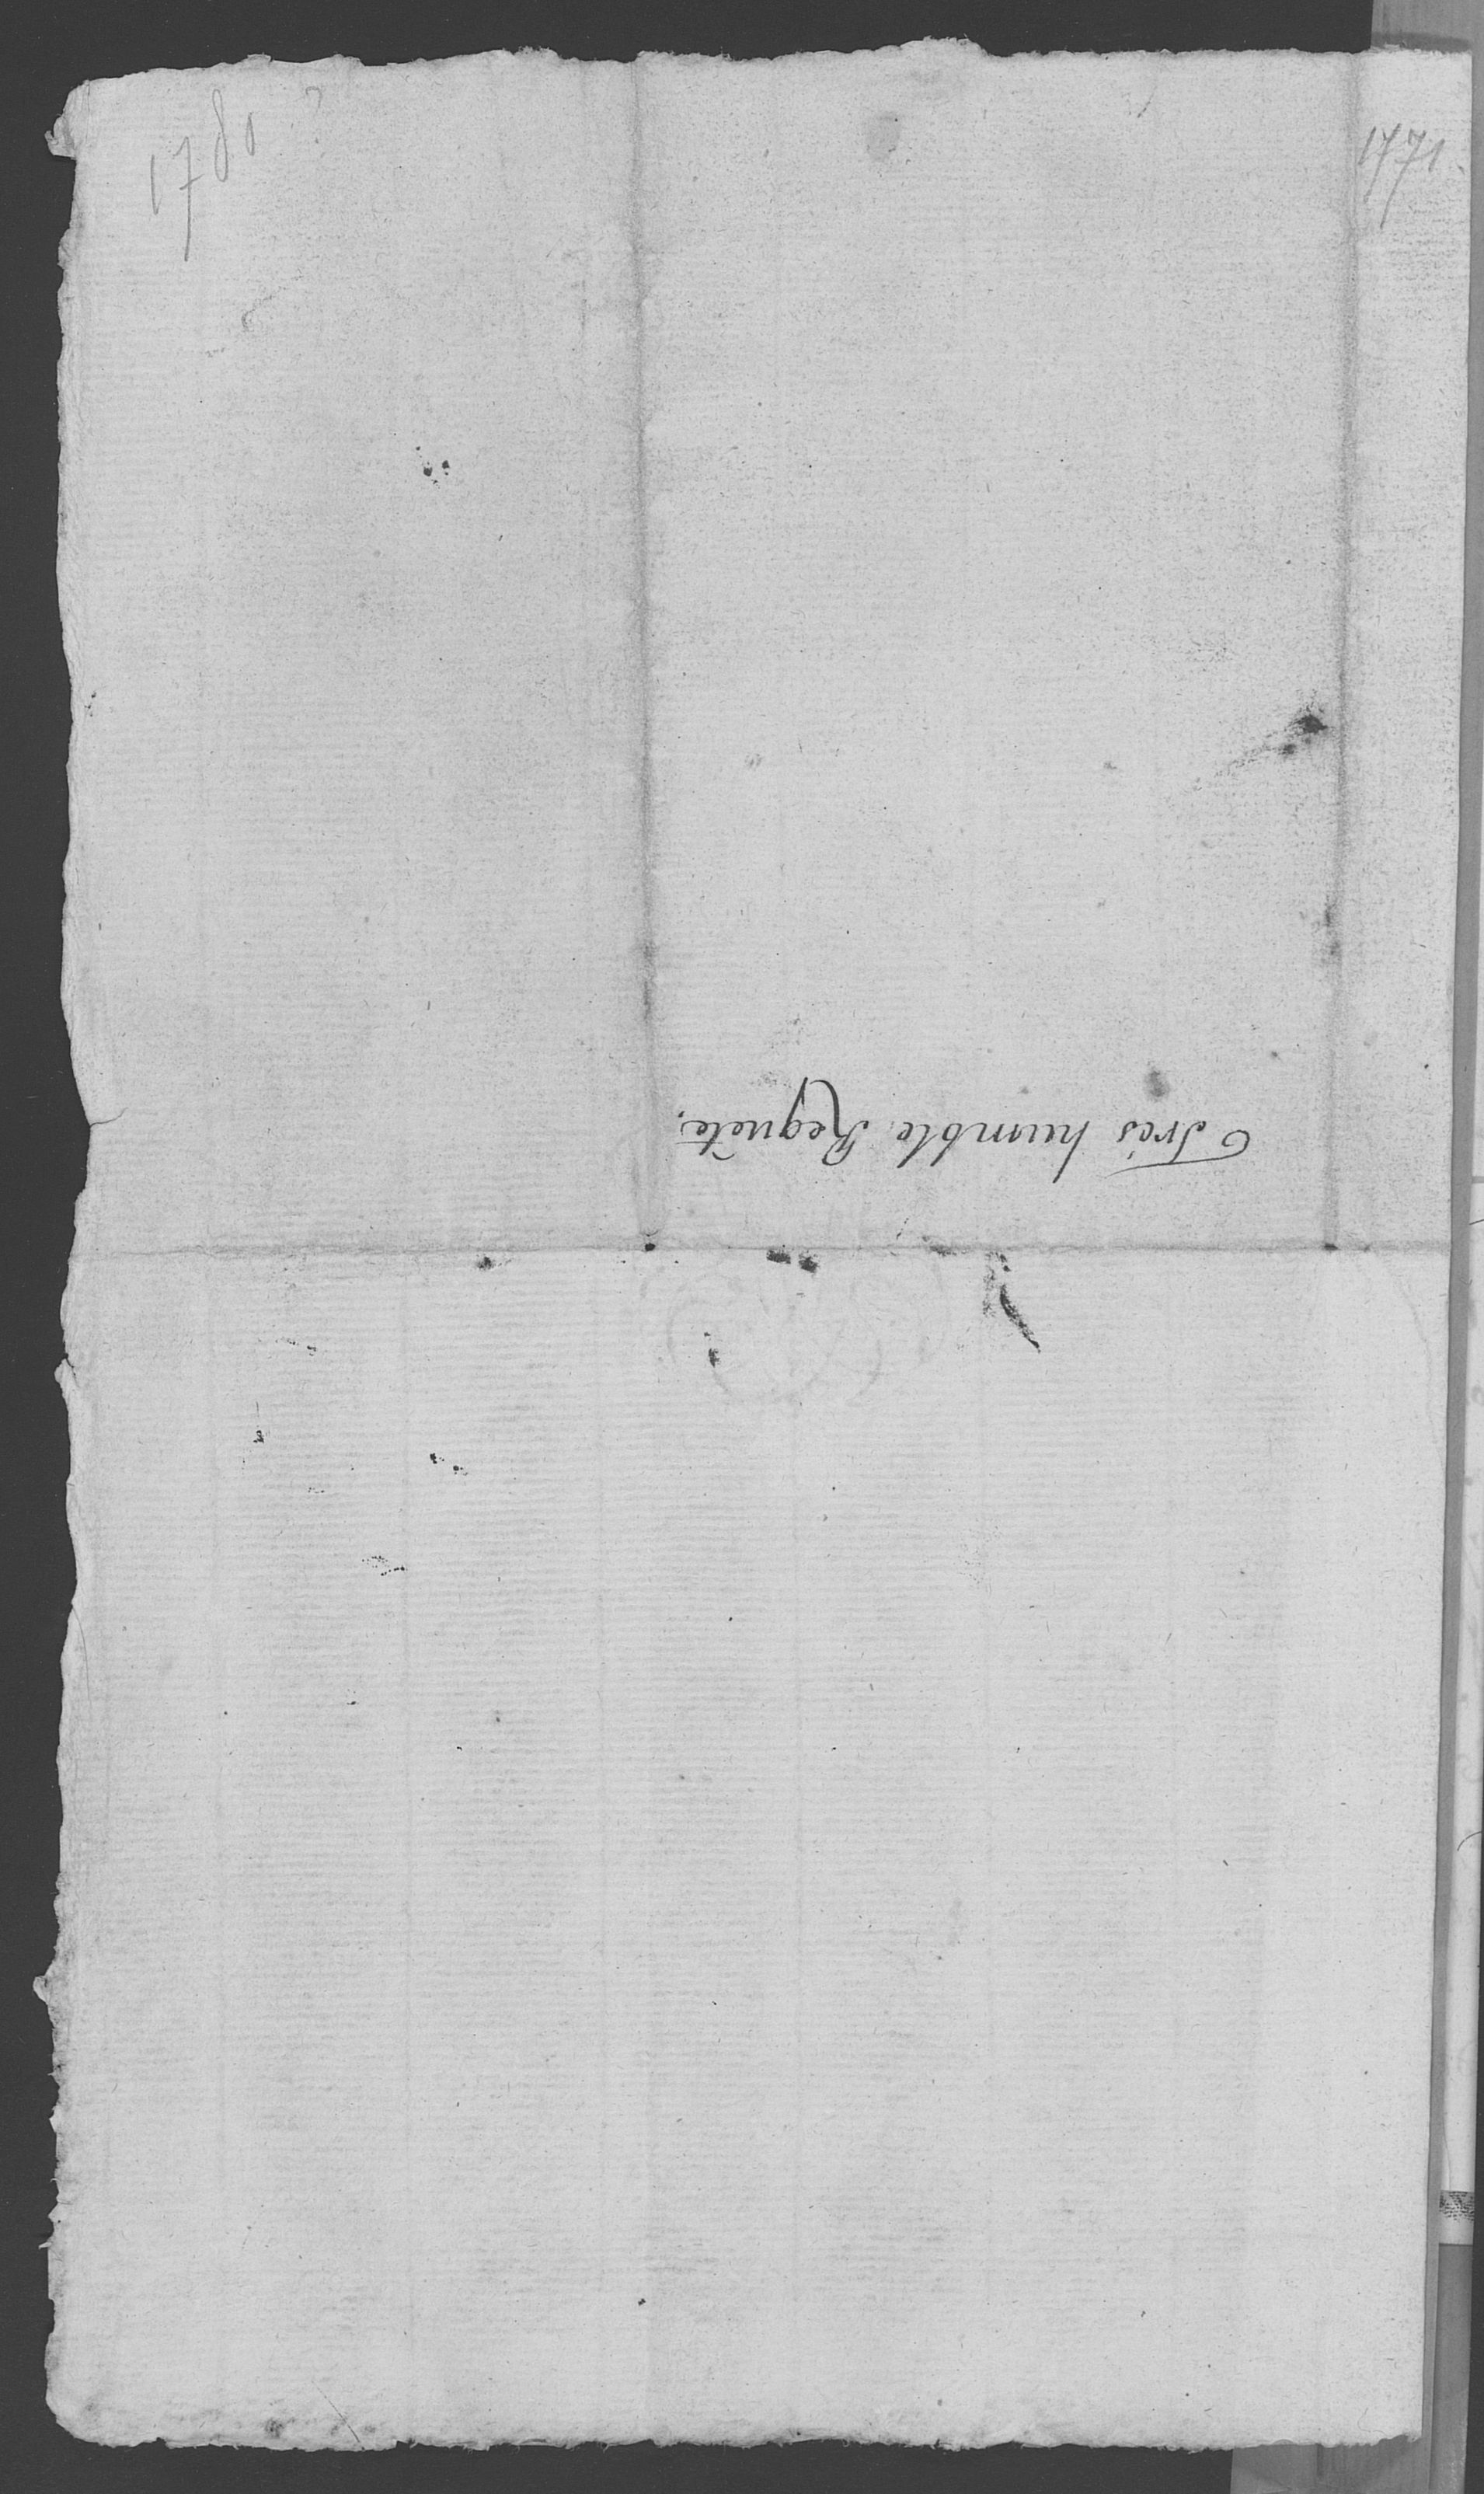 1780 ?
1771.
Très humble Requête.